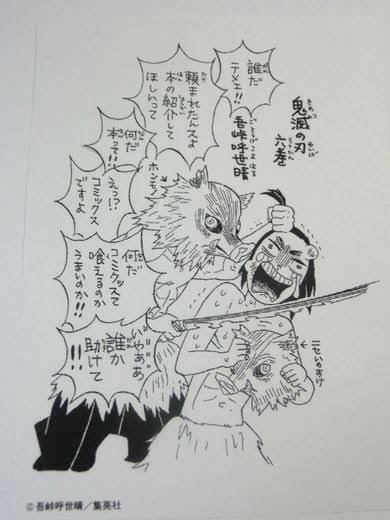 鬼滅の刃
六巻
吾峠呼世晴
誰だ
テメェ!!
頼まれたんスよ
本の紹介して
ほしいって
何だ
本って!!
えっ!?
コミックス
ですよ
何だ
コミクッスて
喰えるのか
うまいのか!!
いやああ
誰か
助けて
!!
ニセいのすけ
©吾峠呼世晴／集英社